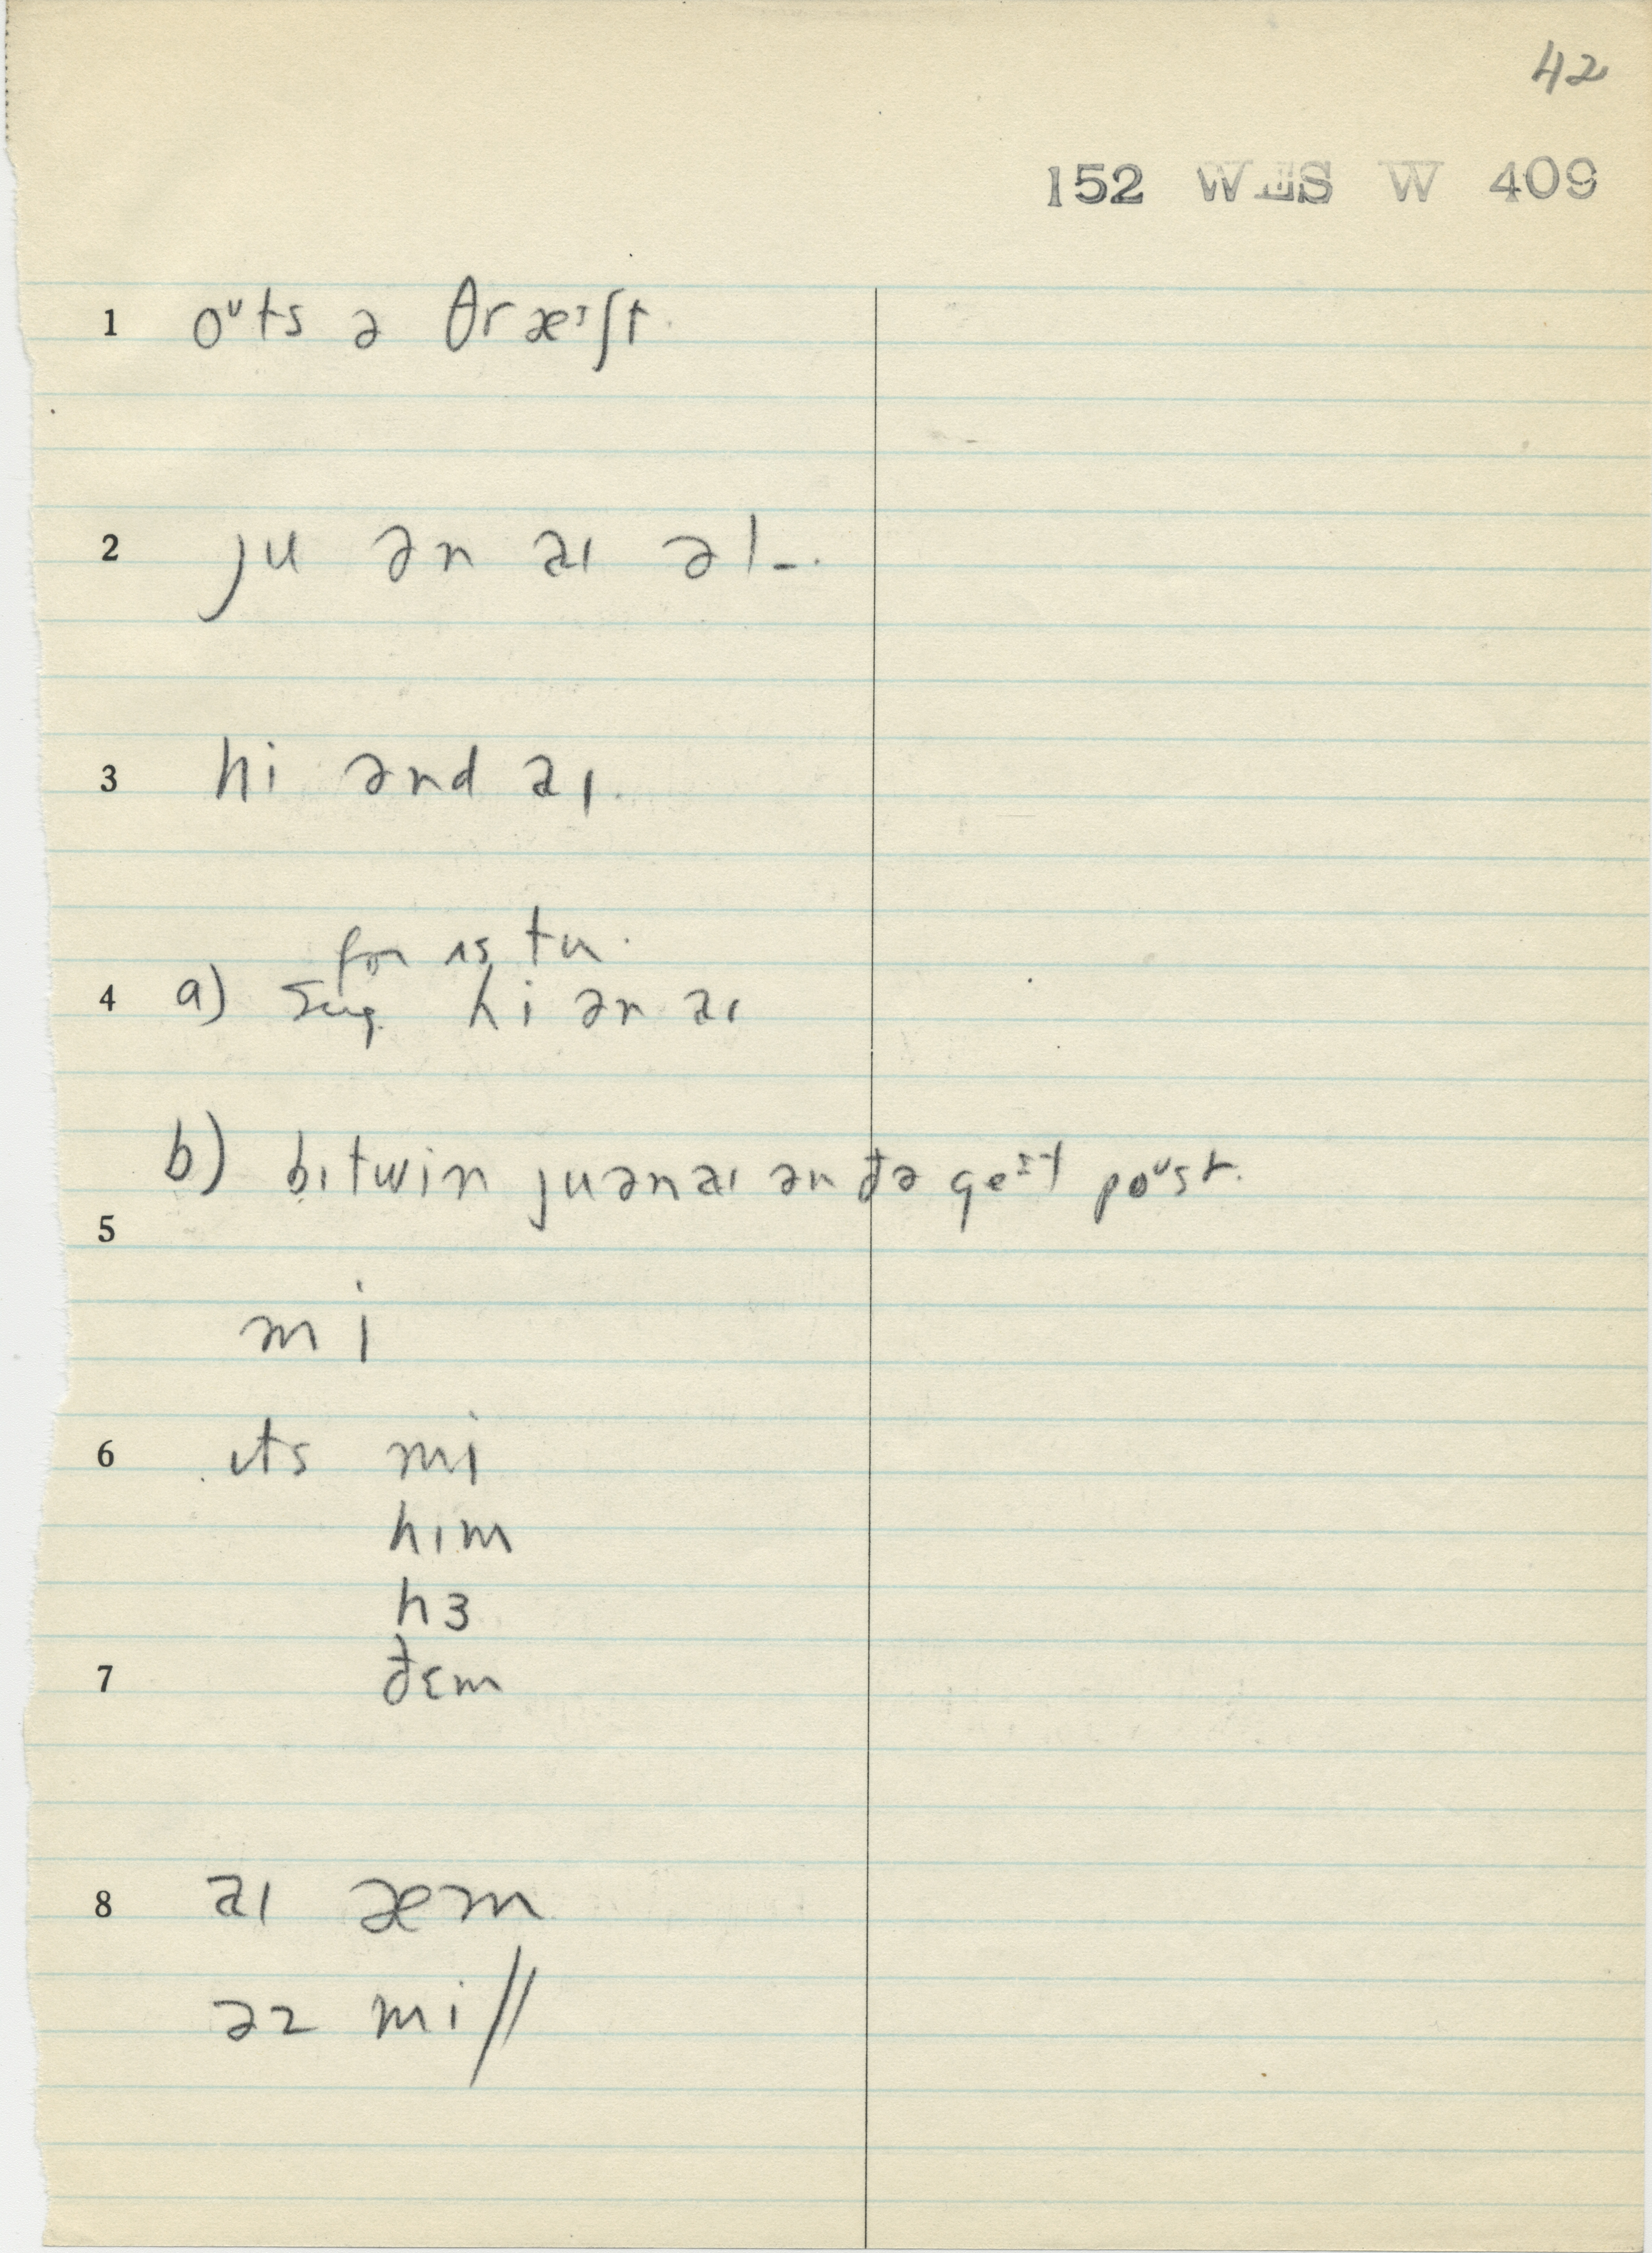 42
152 WES W 409
1 oᶷts ə θræᶦʃt
2 ju ən aɪ əl-.
3 hi ənd aɪ.
for us tu.
4 a) sug. hi ən aɪ
b) bɪtwin juənaɪ ən đə geᶦt poᶷst.
5
mi
6 ɪts mi
hɪm
hɜ
7 đɛm
8 aɪ æm
əz mi//